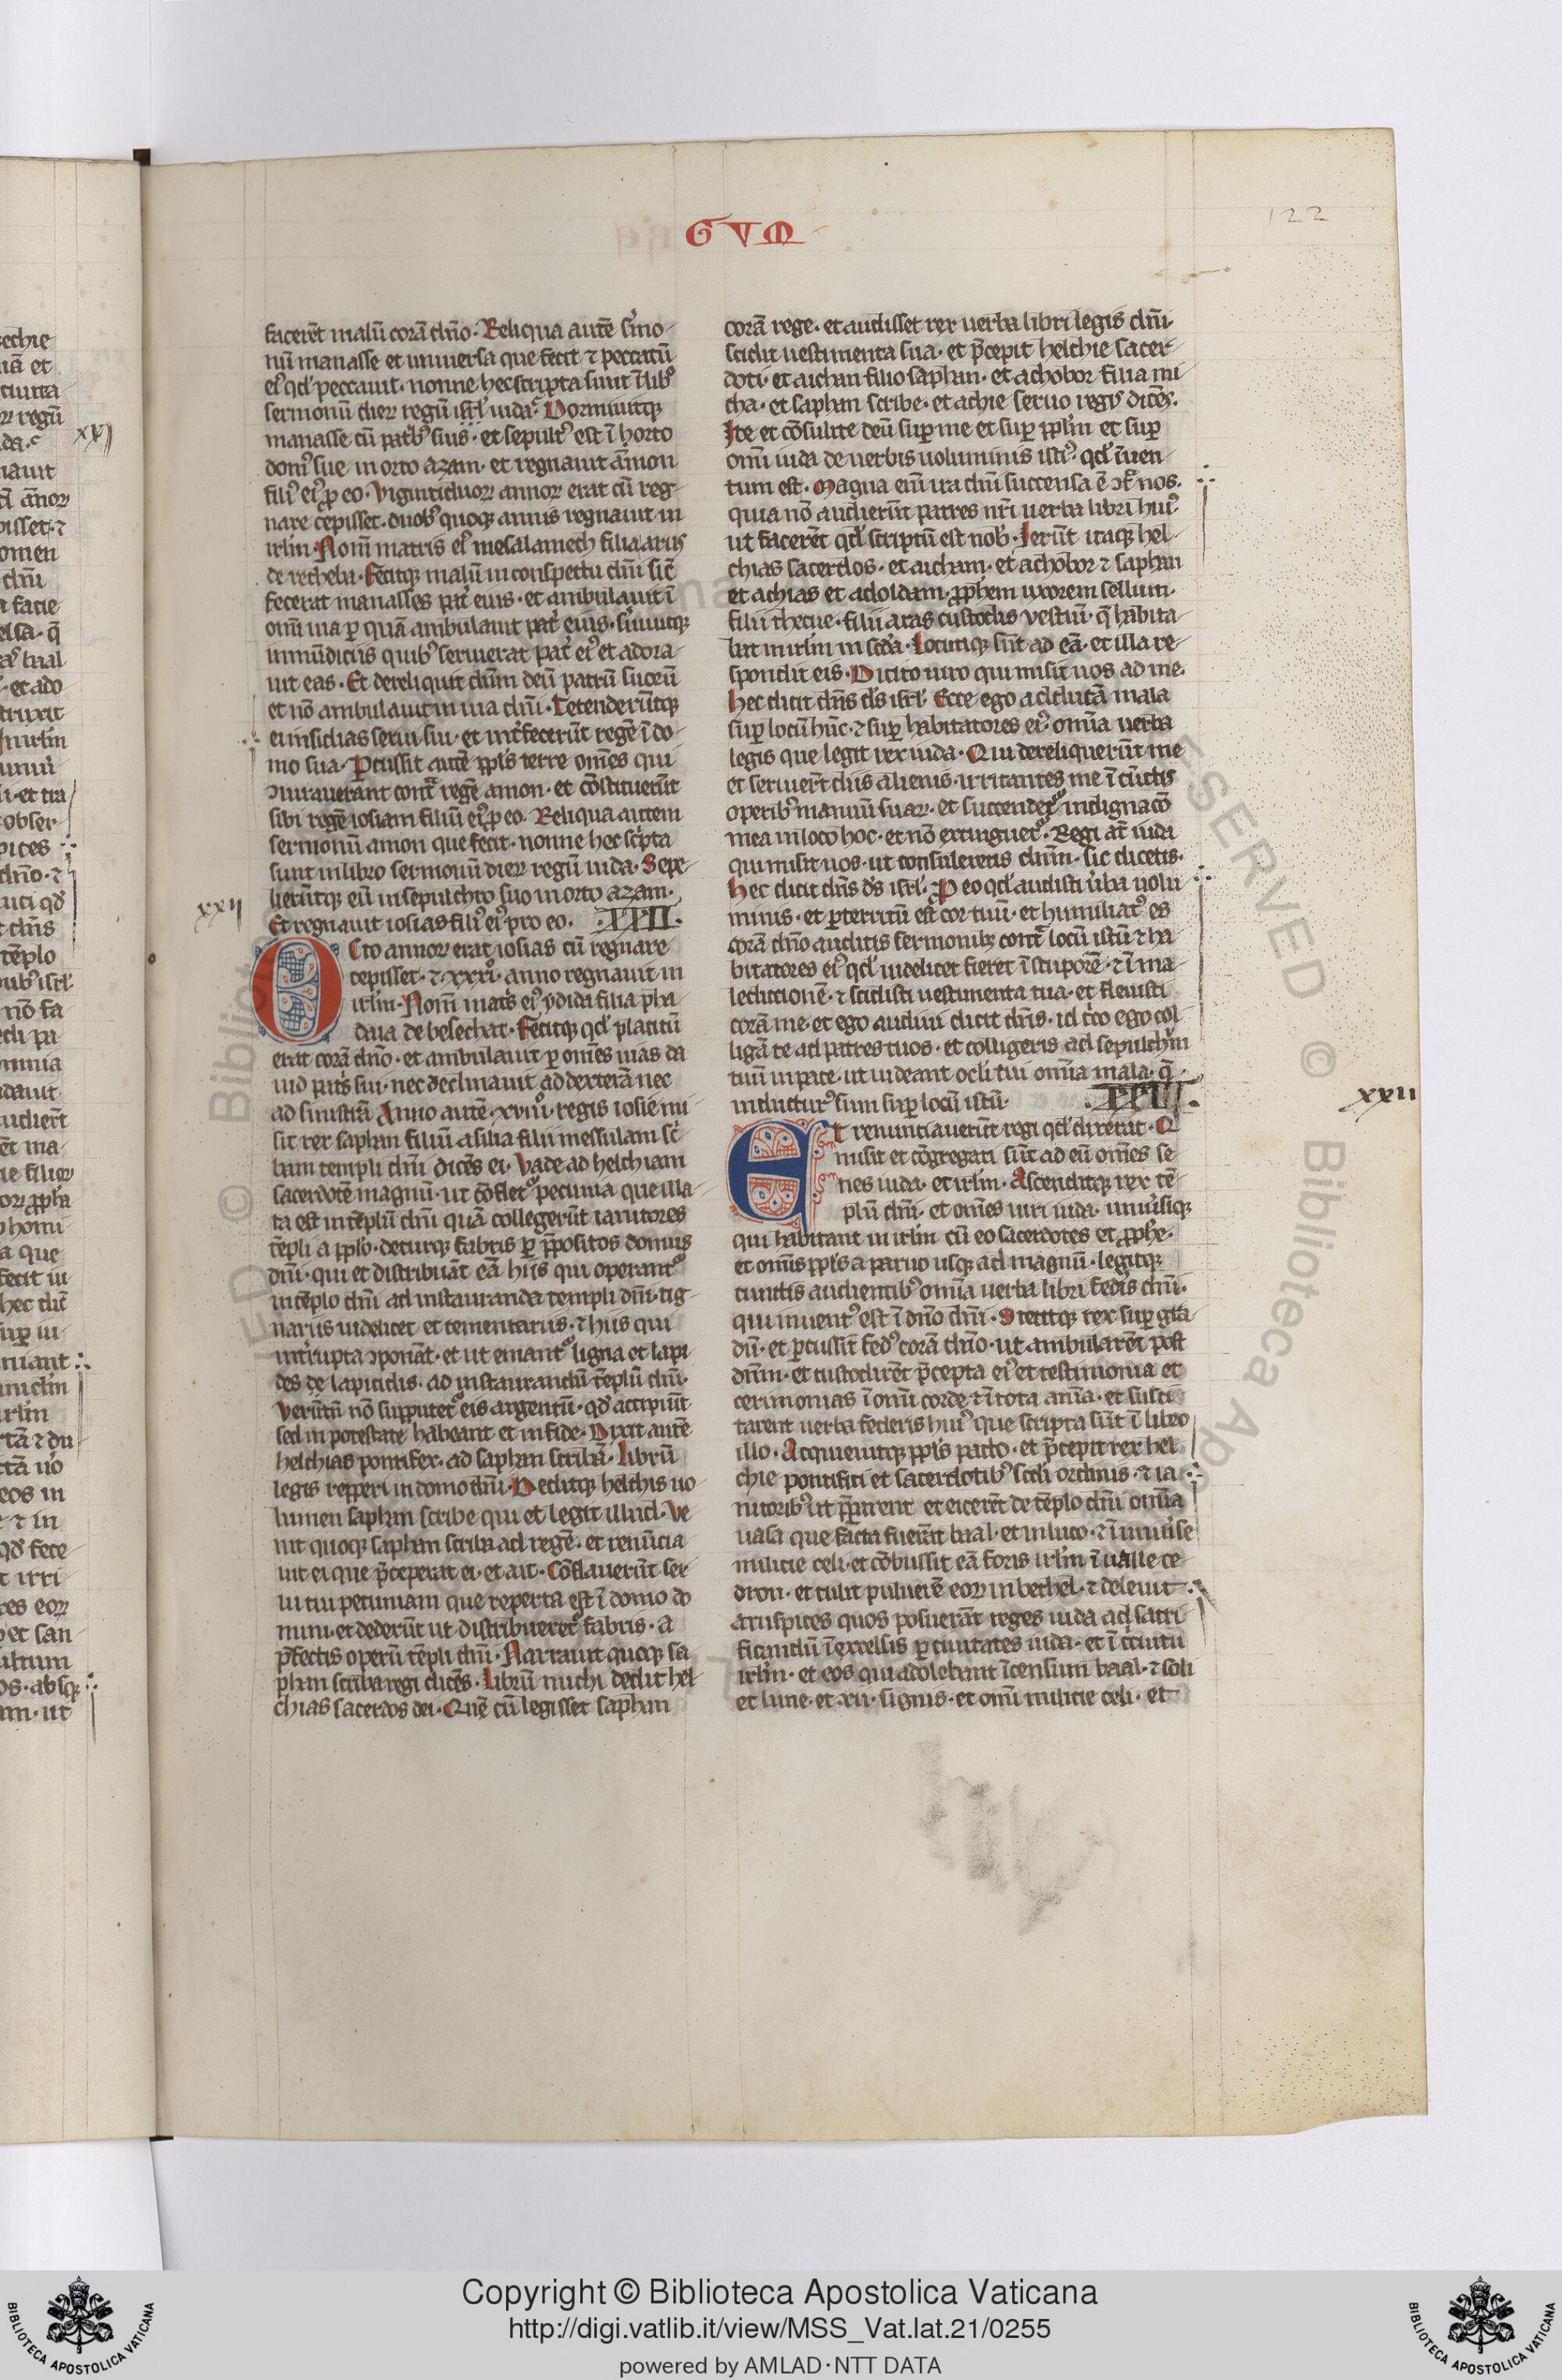 GVM
122
faceret̄ malū corā dn̄o. Reliqua autē s̾mo
nū manasse et uniuersa que fecit ⁊ peccatū
ei᷒ qd̾ peccauit. nonne hec scripta sunt ī lib᷒
sermonū dieꝝ regū isrl̾ iuda. Dormiuitqꝫ
manasse cū patr̾b᷒ suis. et sepult᷒ est ī horto
dom᷒ sue in orto azam. et regnauit amon
fili᷒ ei᷒ ꝓ eo. Viginti duoꝝ annoꝝ erat cū reg
nare cepisset. duob᷒ quoqꝫ annis regnauit in
irlm̄. Nom̄ matris ei᷒ mesalamech filia arus
de retheba. Fecitqꝫ malū in conspectu dn̄i sic̄
fecerat manasses pat̾ eius. et ambulauit ī
om̄i uia ꝑ quā ambulauit pat̾ eius. s̾uiuitqꝫ
inmūdiciis quib᷒ seruierat pat̾ ei᷒ et adora
uit eas. Et dereliquit dn̄m deū patrū suoꝝ
et nō ambulauit in uia dn̄i. Tetenderūtqꝫ
ei insidias serui sui. et int̾fecerūt regē ī do
mo sua. Ꝑcussit autē ppl̄s terre om̄es qui
ↄiurauerant contᵃ regē amon. et cōstituerūt
sibi regē iosiam filiū ei᷒ ꝓ eo. Reliqua autem
sermonū amon que fecit. nonne hec sc̾pta
sunt in libro sermonū dieꝝ regū iuda. Sepe
lierūtqꝫ eū in sepulchro suo in orto azam.
Et regnauit iosias fili᷒ ei᷒ pro eo. XXII.
xxii
Octo annoꝝ erat iosias cū regnare
cepisset. ⁊ xxxi. anno regnauit in
irlm̄. Nom̄ mat̾s ei᷒ ydida filia pha
daia de besechat. Fecitqꝫ qd̾ placitū
erat corā dn̄o. et ambulauit ꝑ om̄es uias da
uid pat̾s sui. nec declinauit ad dexterā nec
ad sinistrā. Anno autē xviii. regis iosie mi
sit rex saphan filiū asilia filii messulam sc̾
bam templi dn̄i dicēs ei. Vade ad helchiam
sacerdotē magnū. ut cōflet᷒ pecunia que illa
ta est in tēplū dn̄i quā collegerūt ianitores
tēpli a pplo. deturqꝫ fabris ꝑ p̄positos domus
dn̄i. qui et distribuāt eā hiis qui operant᷒
in tēplo dn̄i ad instauranda templi dn̄i. tig
nariis uidelicet et cementariis. ⁊ hiis qui
int̾rupta ↄponāt. et ut emant᷒ ligna et lapi
des de lapicidis. ad instaurandū tēplū dn̄i.
Verūtn̄ nō supputet᷒ eis argentū. qd̾ accipiūt
sed in potestate habeant et in fide. Dixit autē
helchias pontifex. ad saphan scribā. Librū
legis repperi in domo dn̄i. Deditqꝫ helchis uo
lumen saphan scribe qui et legit illud. Ve
nit quoqꝫ saphan scriba ad regē. et renūcia
uit ei que p̄ceperat ei. et ait. Cōflauerūt ser
ui tui pecuniam que reperta est ī domo do
mini. et dederūt ut distribueret᷒ fabris. a
p̄fectis operū tēpli dn̄i. Narrauit quoqꝫ sa
phan scriba regi dicēs. Librū michi dedit hel
chias sacerdos dei. Quē cū legisset saphan
corā rege. et audisset rex uerba libri legis dn̄i.
scidit uestimenta sua. et p̄cepit helchie sacer
doti. et aichan filio saphan. et achobor filia mi
cha. et saphan scribe. et achie seruo regis dicēs.
Ite et cōsulite deū suꝑ me et suꝑ pplm̄ et suꝑ
om̄i iuda de uerbis uoluminis isti᷒. qd̾ īuen
tum est. Magna eni̅ ira dn̄i succensa ē ↄtᵃ nos.
quia nō audierūt patres nr̄i uerba libri hui᷒
ut facerēt qd̾ scriptū est nob̾. Ierūt itaqꝫ hel
chias sacerdos. et aicham. et achobor ⁊ saphan
et achias et ad oldam. ꝓphem uxorem sellum.
filii thecue. filii aras custodis vestiū. q̄ habita
bat in irlm̄ in scd̾a. Locutiqꝫ sūt ad eā. et illa re
spondit eis. Dicito uiro qui misit uos ad me.
Hec dicit dn̄s ds̄ isrl̾. Ecce ego adducā mala
suꝑ locū hūc. ⁊ suꝑ habitatores ei᷒. om̄ia uerba
legis que legit rex iuda. Qui dereliquerūt me
et seruier̄t diis alienis. irritantes me ī cūctis
operib᷒ manuū suaꝝ. et succendet᷒ indignacō
mea in loco hoc. et nō extinguet᷒. Regi at̄ iuda
qui misit uos. ut consuleretis dn̄m. sic dicetis.
Hec dicit dn̄s ds̄ isrl̾. P eo qd̾ audisti u̾ba uolu
minis. et ꝑterritū est cor tuū. et humiliat᷒ es
corā dn̄o auditis sermonibꝫ contᵃ locū istū ⁊ ha
bitatores ei᷒ qd̾ uidelicet fieret ī stuporē. ⁊ ī ma
ledictionē. ⁊ scidisti uestimenta tua. et fleuisti
corā me. et ego audiui dicit dn̄s. id c̾co ego col
ligā te ad patres tuos. et colligeris ad sepulch᷒m
tuū in pace. ut uideant ocl̄i tui om̄ia mala. q̄
inductur᷒ sum suꝑ locū istū. XXIII.
xxiii
Et renunciauerūt regi qd̾ dixerat. Q
misit et cōgregati sūt ad eū om̄es se
nes iuda. et irlm̄. Ascenditqꝫ rex tē
plū dn̄i. et om̄es uiri iuda. uniu̾siqꝫ
qui habitant in irlm̄ cū eo sacerdotes et ꝓphe.
et om̄is ppl̄s a paruo usqꝫ ad magnū. legitqꝫ
cunctis audientib᷒ om̄ia uerba libri fed̾is dn̄i.
qui inuent᷒ est ī dn̄o dn̄i. Stetitqꝫ rex suꝑ gͣa
dū. et ꝑcussit fed᷒ corā dn̄o. ut ambularēt post
dn̄m. et custodirēt p̄cepta ei᷒ et testimonia et
cerimonias ī om̄i corde ⁊ ī tota anīa. et susci
tarent uerba federis hui᷒ que scripta sūt ī libro
illo. Acquieuitqꝫ ppl̄s pacto. et p̄cepit rex hel
chie pontifici et sacerdotib᷒ scd̾i ordinis. ⁊ ia
nitorib᷒ ut p̄pararent et eicerēt de tēplo dn̄i om̄ia
uasa que facta fuerāt baal. et in luco. ⁊ ī uniu̾se
milicie celi. et cōbussit eā foris irlm̄ ī ualle ce
dron. et tulit puluerē eoꝝ in bethel. ⁊ deleuit
aruspices quos posuerāt reges iuda ad sacri
ficandū ī excelsis ꝑ ciuitates iuda. et ī ccuitu
irlm̄. et eos qui adolebant īcensum baal. ⁊ soli
et lune. et xii. signis. et om̄i milicie celi. et
Copyright © Biblioteca Apostolica Vaticana
http://digi.vatlib.it/view/MSS_Vat.lat.21/0255
powered by AMLAD·NTT DATA
BIBLIOTECA APOSTOLICA VATICANA
BIBLIOTECA APOSTOLICA VATICANA